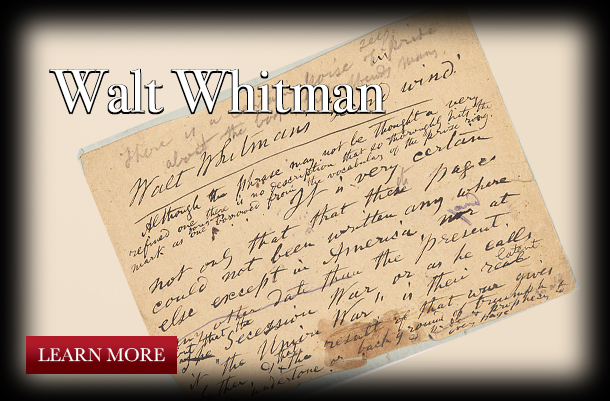 Walt Whitman
There is a noise self pride
about the book offends many.
Walt Whitman's wind.
Although this phrase may not be thought a very
refined one, there is no description that so thoroughly hits the
mark as one borrowed from the vocabulary of the prize ring.
It is very certain
not only that these pages
could not been written any where
else except in America, nor at
any other date than the present.
that the latent
the Secession War, or as he calls
it "the Union War", is their real
the result of that war gives
undertone or background of triumph &
prophecy
page
LEARN MORE